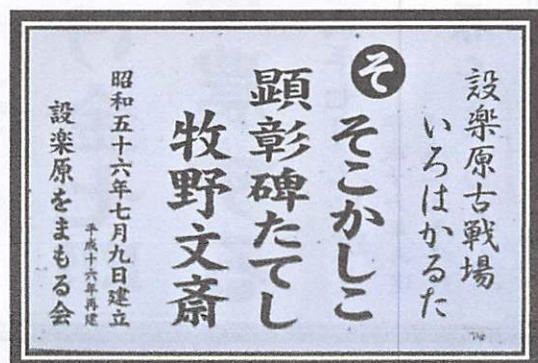 設楽原古戦場
いろはかるた
そ そこかしこ
顕彰碑たてし
牧野文斎
昭和五十六年七月九日建立
平成十六年再建
設楽原をまもる会